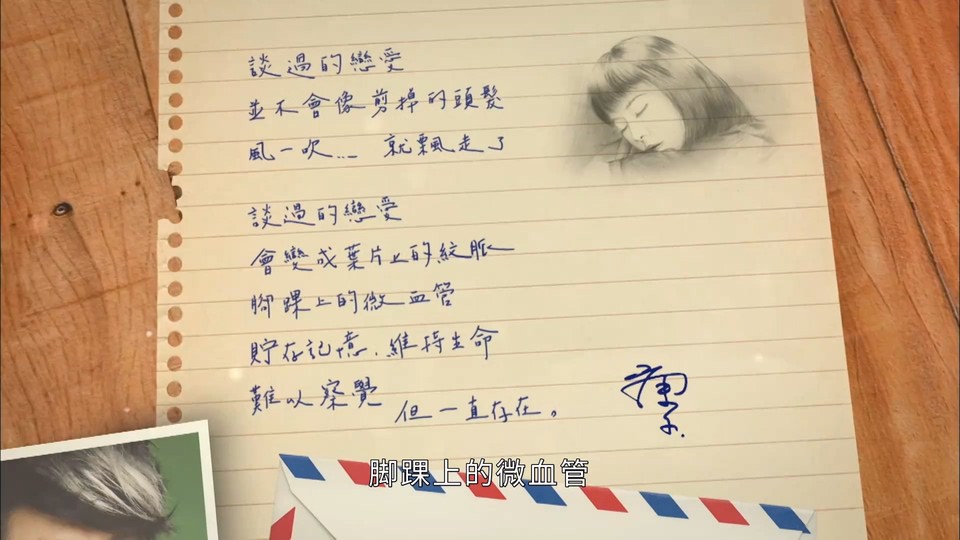 談過的戀愛
並不會像剪掉的頭髮
風一吹… 就飄走了
談過的戀愛
會變成葉片上的紋脈
腳踝上的微血管
貯存記憶、維持生命
難以察覺 但一直存在。
腳踝上的微血管